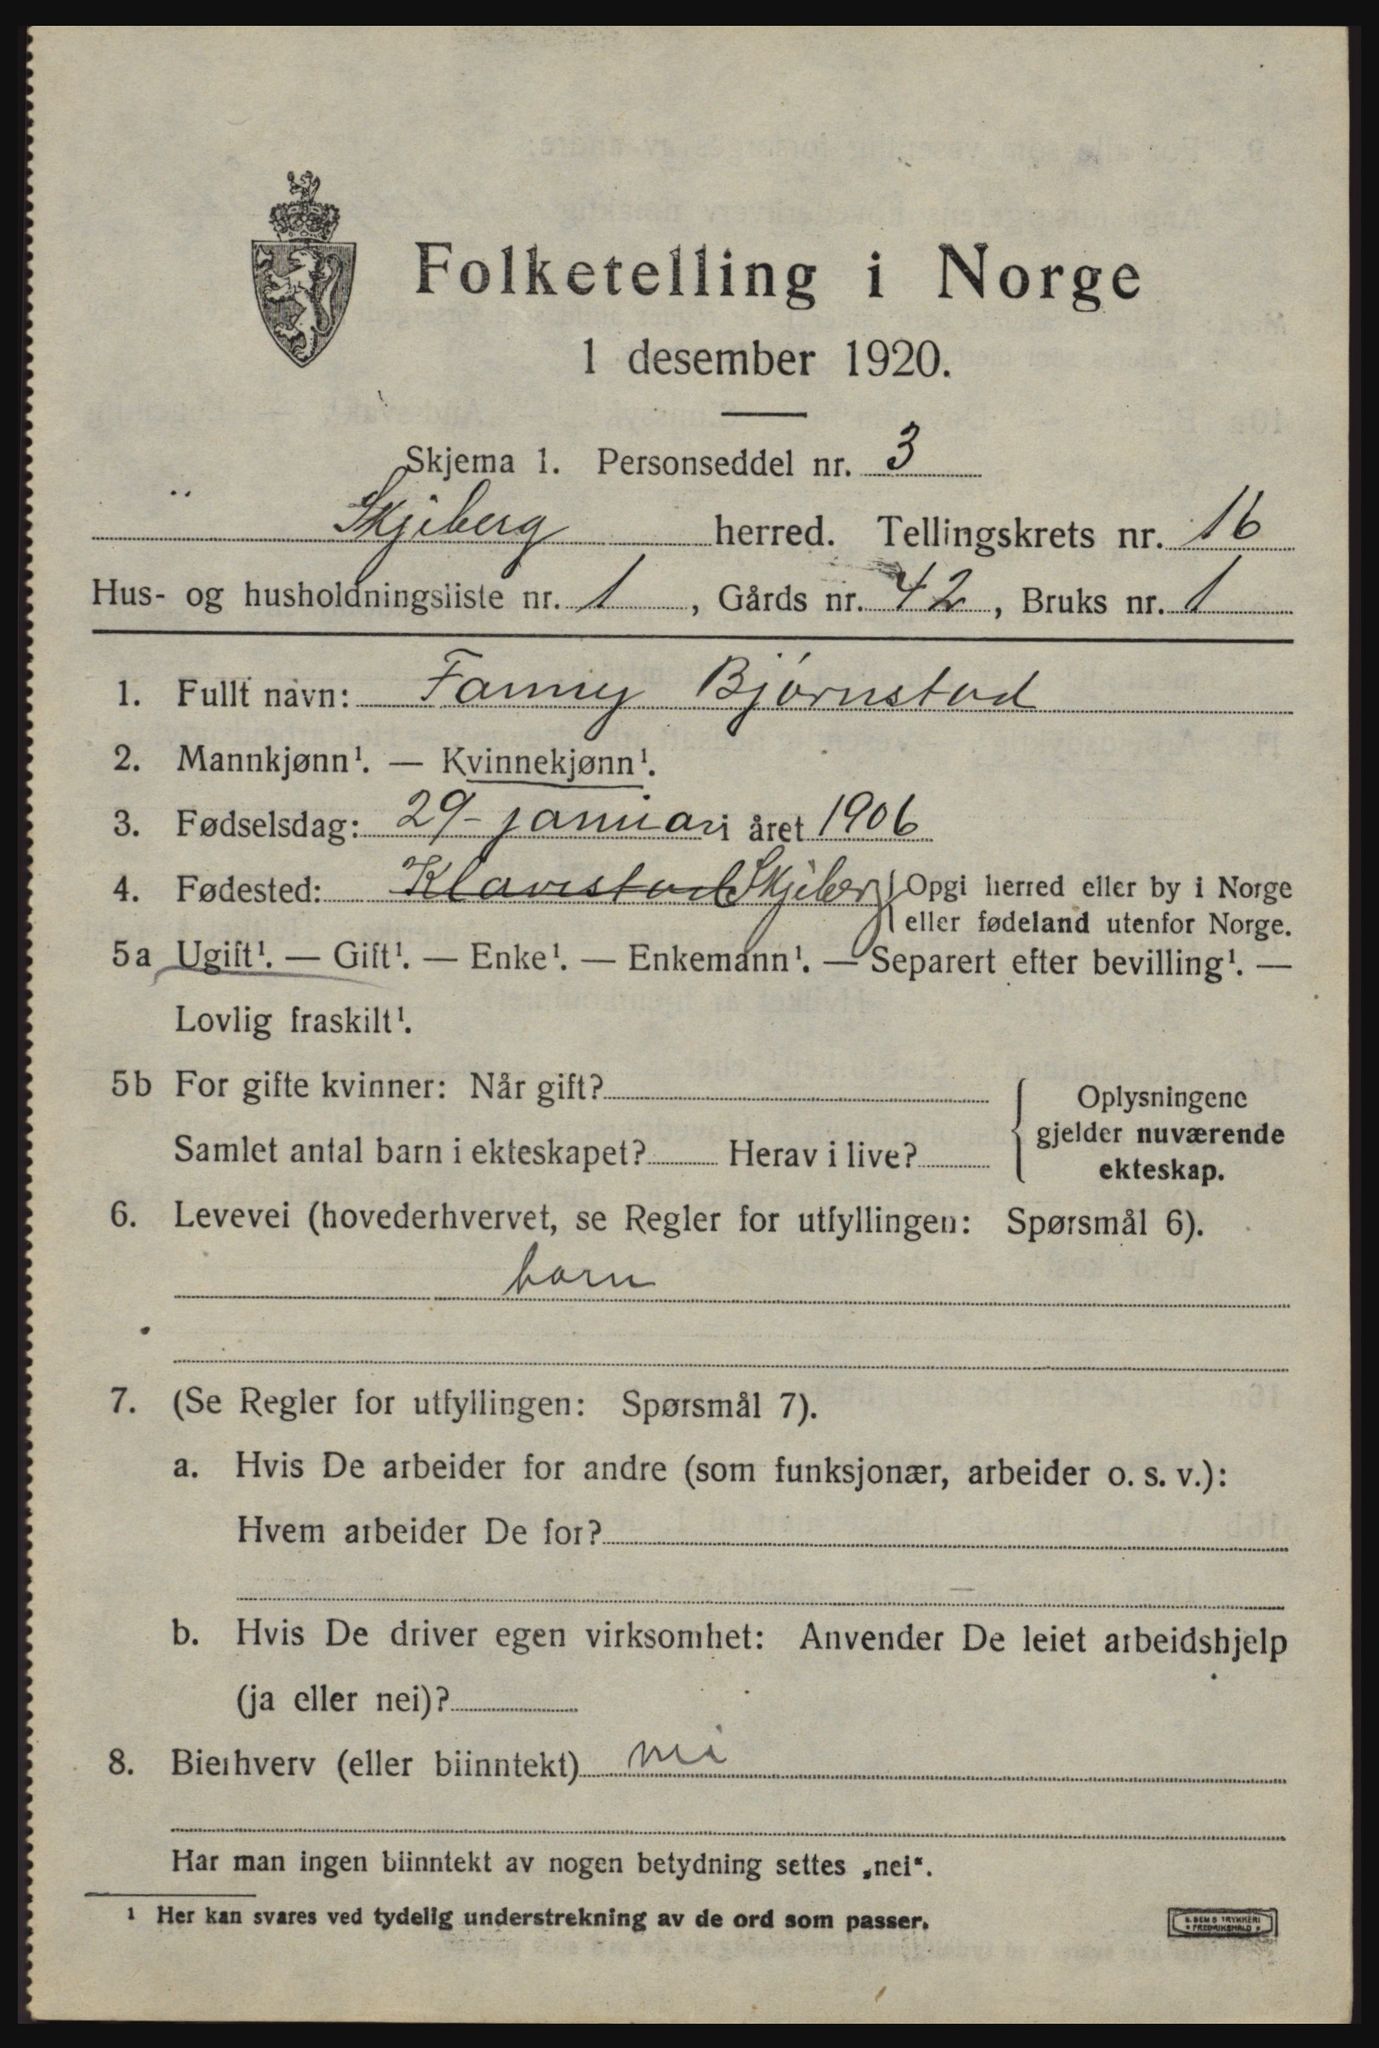 Folketelling i Norge
1 desember 1920.
Skjema 1. Personseddel nr. 3
Skjeberg herred. Tellingskrets nr. 16
Hus- og husholdningsliste nr. 1, Gårds nr. 42, Bruks nr. 1
1. Fullt navn: Fanny Bjørnstad
2. Mannkjønn¹. — Kvinnekjønn¹.
3. Fødselsdag: 29 - januar i året 1906
4. Fødested: Skjeberg { Opgi herred eller by i Norge
eller fødeland utenfor Norge.
5a Ugift¹. — Gift¹. — Enke¹. — Enkemann¹. — Separert efter bevilling¹. —
Lovlig fraskilt¹.
5b For gifte kvinner: Når gift?
Samlet antal barn i ekteskapet? Herav i live?
{ Oplysningene
gjelder nuværende
ekteskap.
6. Levevei (hovederhvervet, se Regler for utfyllingen: Spørsmål 6).
barn
7. (Se Regler for utfyllingen: Spørsmål 7).
a. Hvis De arbeider for andre (som funksjonær, arbeider o. s. v.):
Hvem arbeider De for?
b. Hvis De driver egen virksomhet: Anvender De leiet arbeidshjelp
(ja eller nei)?
8. Bierhverv (eller biinntekt) nei
Har man ingen biinntekt av nogen betydning settes „nei“.
¹ Her kan svares ved tydelig understrekning av de ord som passer.